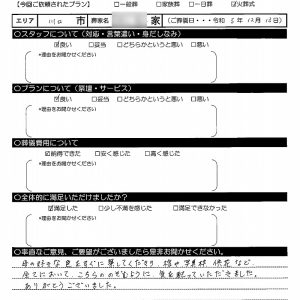 【今回ご依頼されたプラン】 □一般葬 □家族葬 □一日葬 ☑火葬式
エリア 川口 市 葬家名 家 (ご葬儀日・・令和 5年 12月 12日)
○スタッフについて(対応・言葉遣い・身だしなみ)
☑良い □妥当 □どちらかというと悪い □悪い
*理由をお聞かせください
○プランについて(祭壇・サービス)
☑良い □妥当 □どちらかというと悪い □悪い
*理由をお聞かせください
○葬儀費用について
☑納得できた □安く感じた □高く感じた
*理由をお聞かせください
○全体的に満足いただけましたか?
☑満足した □少し不満を感じた □満足できなかった
*理由をお聞かせください
○率直なご意見、ご要望がございましたら是非お聞かせください。
母の好きな色をすぐに探してくださり、棺や写真枠、供花など
全てにおいて、こちらののぞむように、気を配っていただきました。
ありがとうございました。